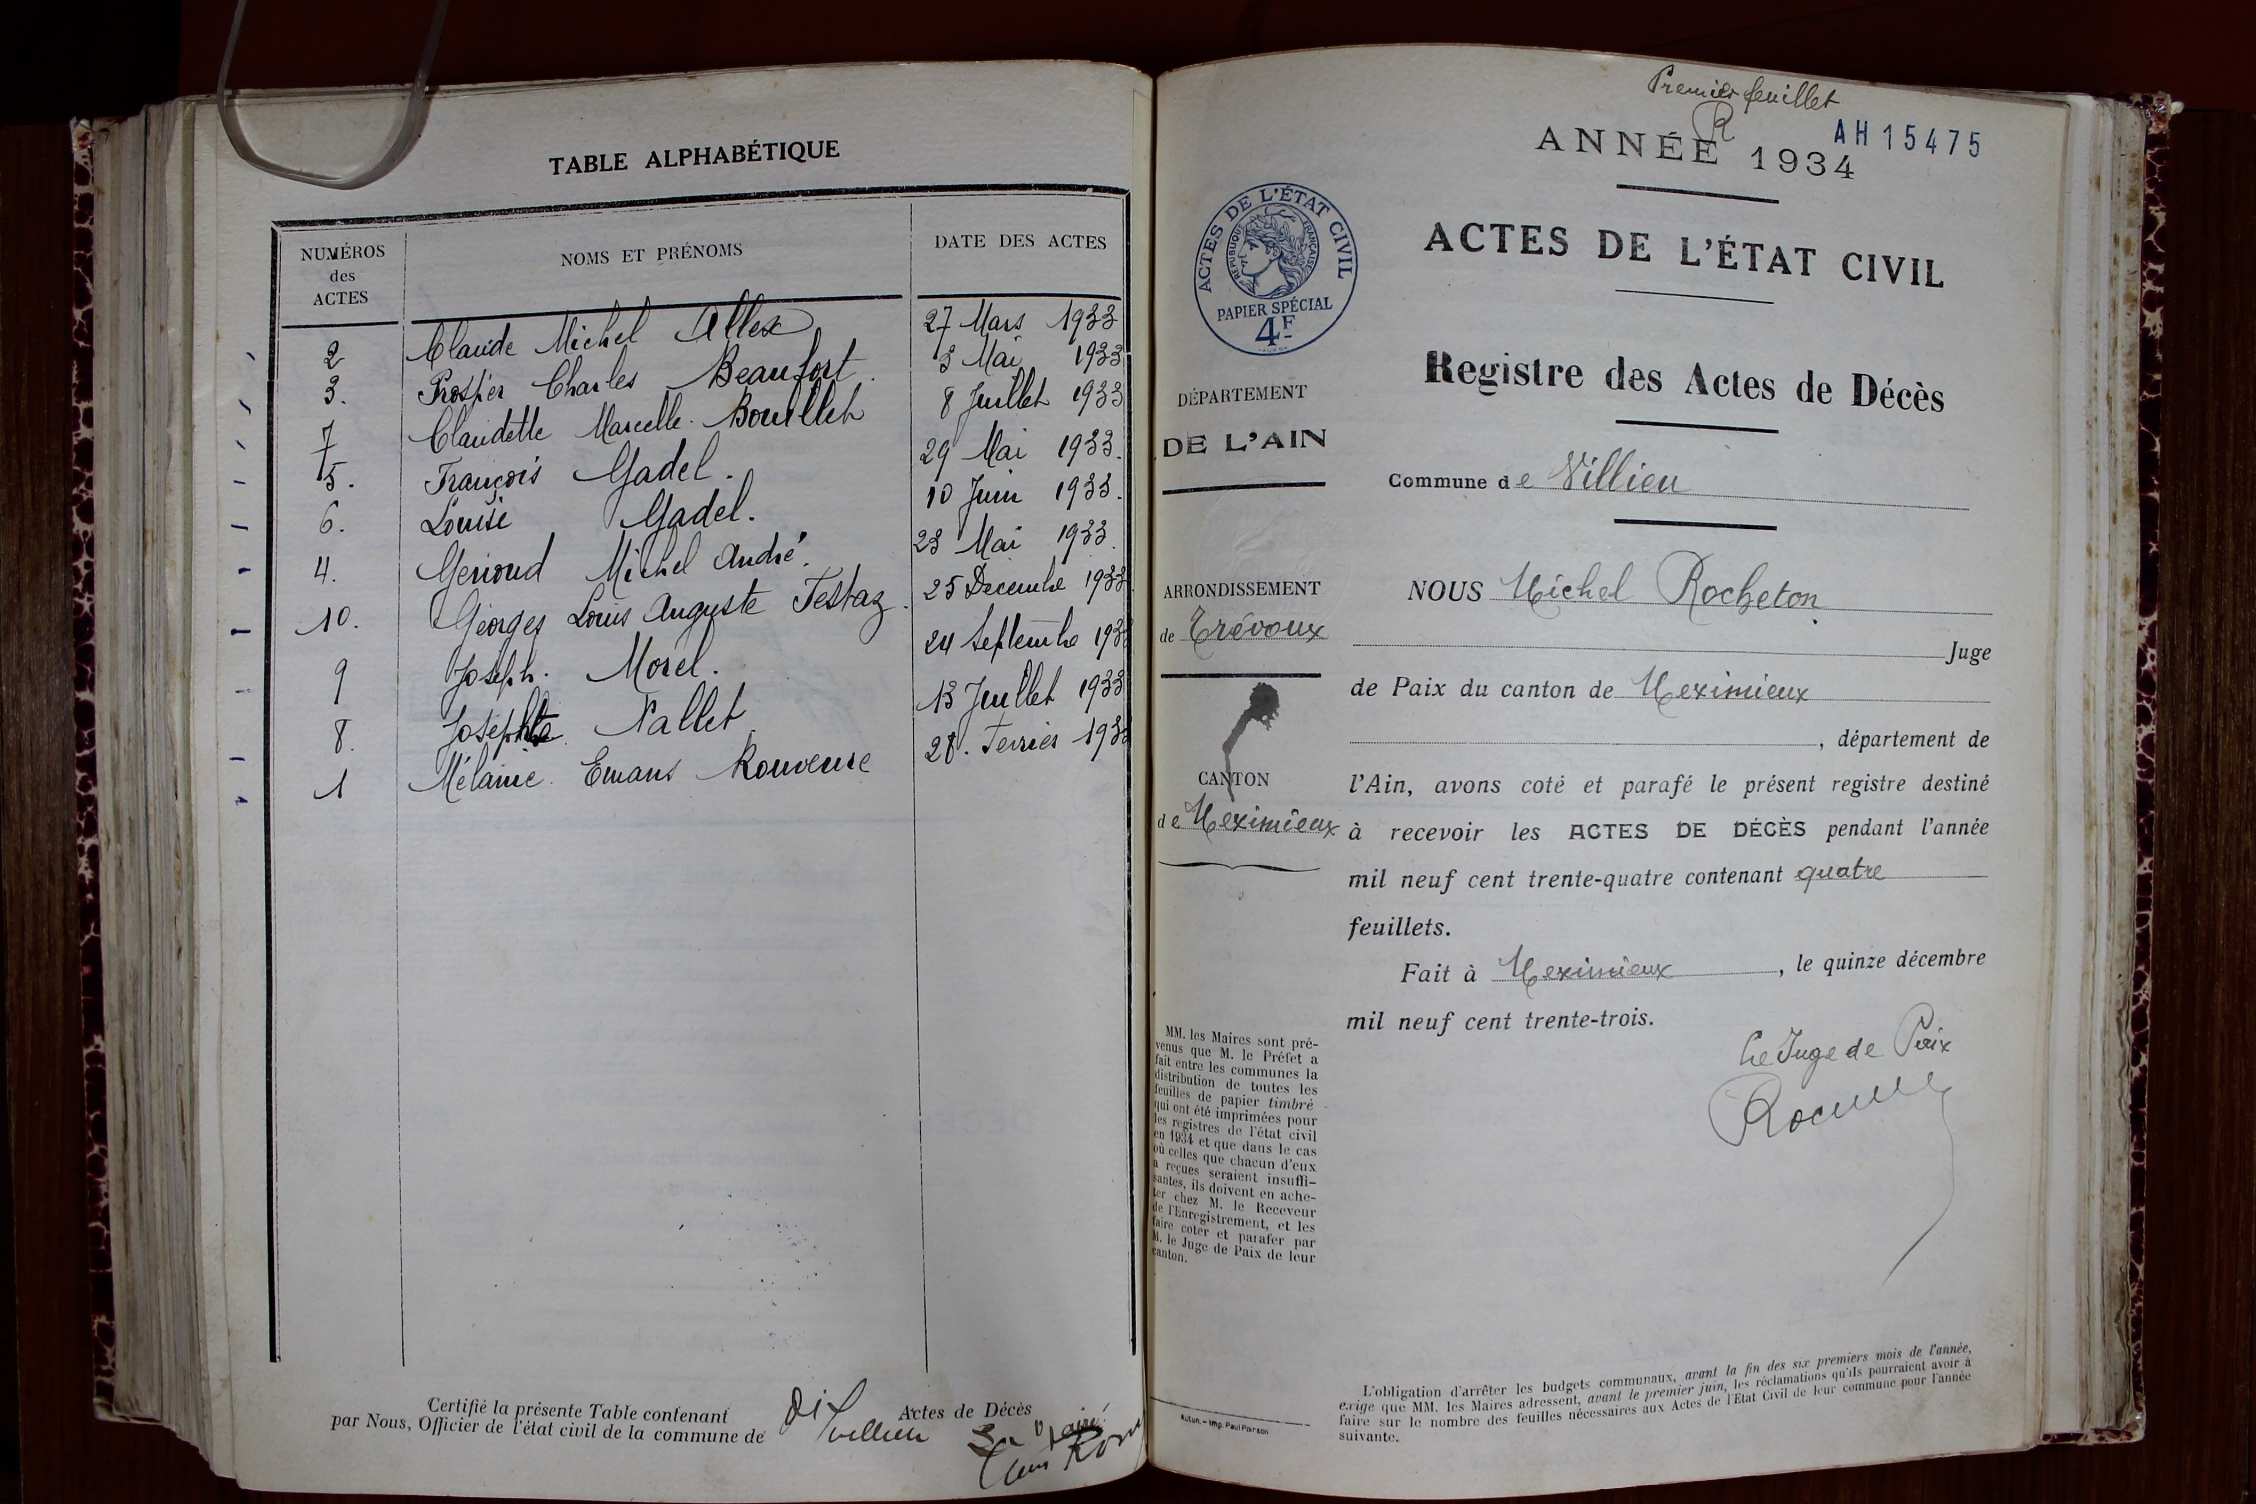 TABLE ALPHABÉTIQUE
NUMÉROS des ACTES
NOMS ET PRÉNOMS
DATE DES ACTES
2 Claude Michel Allex 27 Mars 1933
3. Prosper Charles Beaufort. 3 Mai 1933
7 Claudette Marcelle Bouillet 8 Juillet 1933
5. François Gadel. 29 Mai 1933.
6. Louise Gadel. 10 Juin 1933.
4. Genoud Michel André. 23 Mai 1933.
10. Georges Louis Auguste Testaz. 25 Decembre 1933
9 Joseph. Morel. 24 Septembre 1933
8. Nallet 13 Juillet 1933
1 Mélanie 28. Fevrier 1933
Certifié la présente Table contenant dix Actes de Décès
par Nous, Officier de l'état civil de la commune de Villieu
Premier feuillet
R
AH 15475
ANNÉE 1934
ACTES DE L'ÉTAT CIVIL
RÉPUBLIQUE FRANÇAISE
PAPIER SPÉCIAL
4F
ACTES DE L'ÉTAT CIVIL
Registre des Actes de Décès
DÉPARTEMENT
DE L'AIN
Commune de Villieu
ARRONDISSEMENT
de Trévoux
CANTON
de Meximieux
NOUS Michel Rocheton
Juge
de Paix du canton de Meximieux
, département de
l'Ain, avons coté et parafé le présent registre destiné
à recevoir les ACTES DE DÉCÈS pendant l'année
mil neuf cent trente-quatre contenant quatre
feuillets.
Fait à Meximieux, le quinze décembre
mil neuf cent trente-trois.
Le Juge de Paix
MM. les Maires sont pré-
venus que M. le Préfet a
fait entre les communes la
distribution de toutes les
feuilles de papier timbré
qui ont été imprimées pour
les registres de l'état civil
en 1934 et que dans le cas
où celles que chacun d'eux
a reçues seraient insuffi-
santes, ils doivent en ache-
ter chez M. le Receveur
de l'Enregistrement, et les
faire coter et parafer par
M. le Juge de Paix de leur
canton.
Autun. – Imp. Paul Poirson
L'obligation d'arrêter les budgets communaux, avant la fin des six premiers mois de l'année,
exige que MM. les Maires adressent, avant le premier juin, les réclamations qu'ils pourraient avoir à
faire sur le nombre des feuilles nécessaires aux Actes de l'Etat Civil de leur commune pour l'année
suivante.